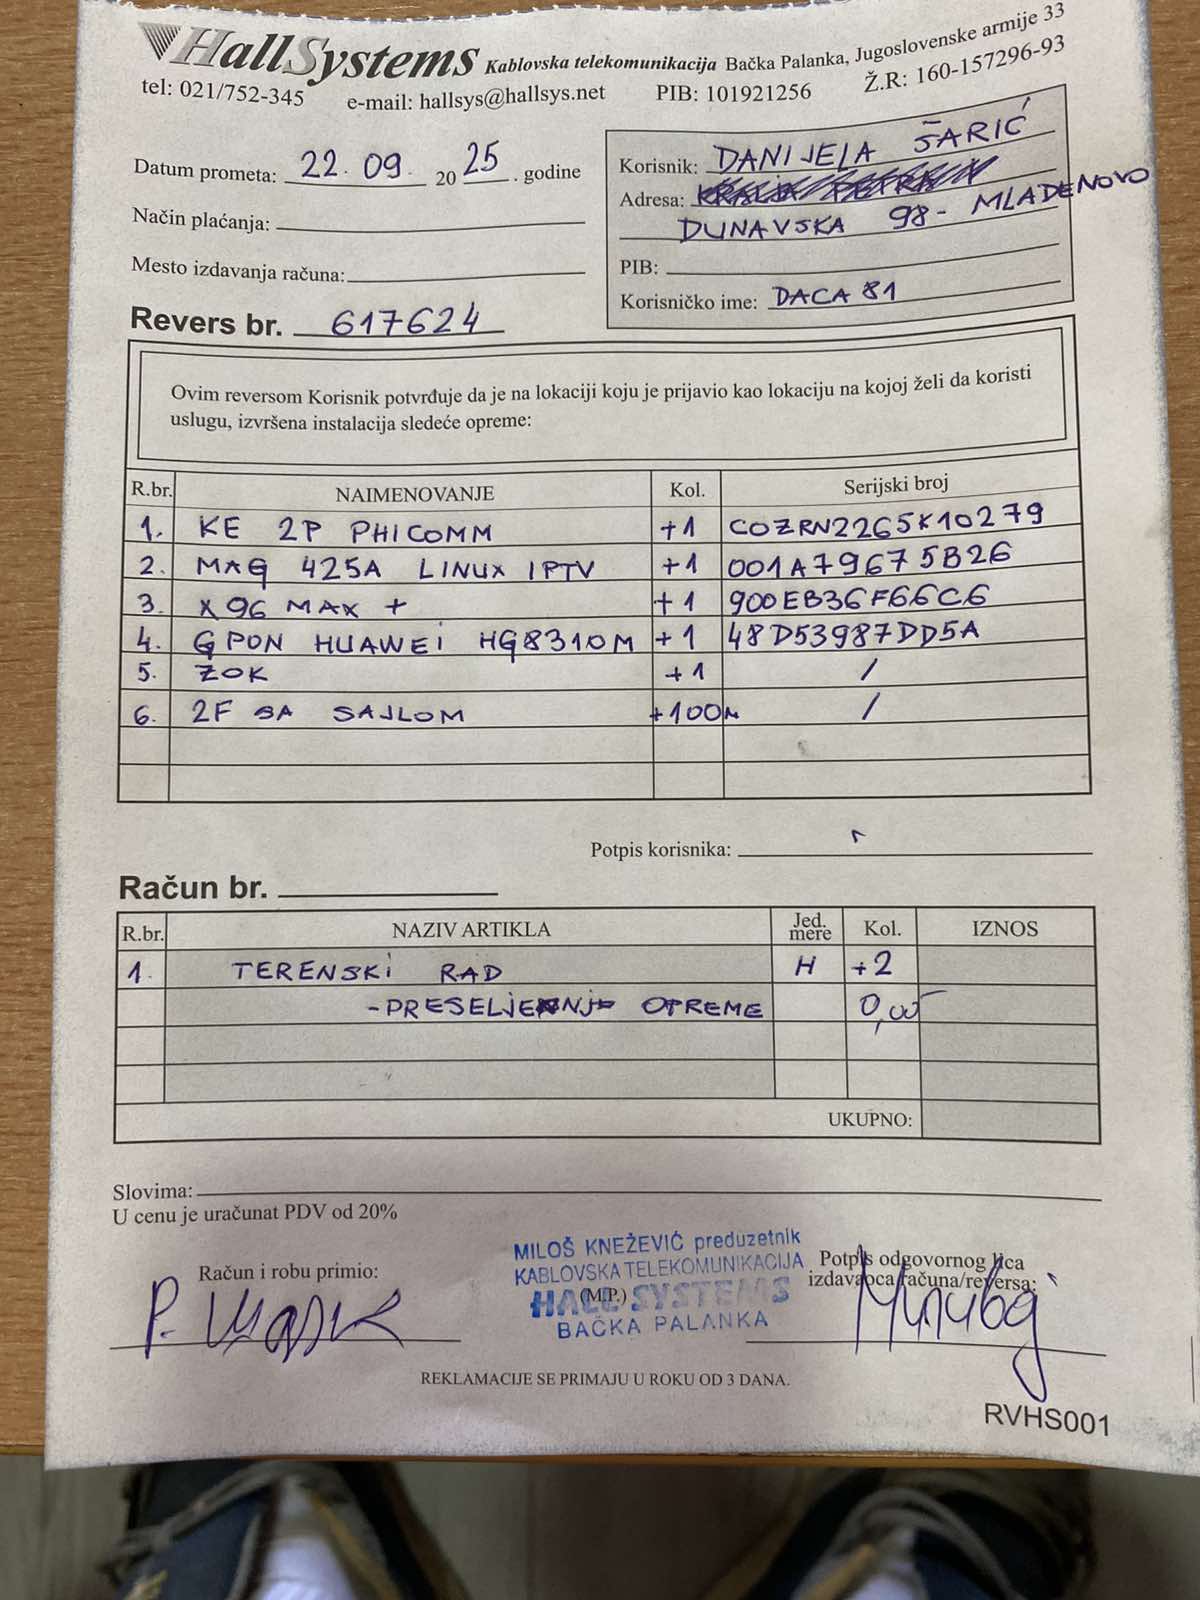 HallSystems Kablovska telekomunikacija Bačka Palanka, Jugoslovenske armije 33
tel: 021/752-345 e-mail: hallsys@hallsys.net PIB: 101921256 Ž.R: 160-157296-93
Datum prometa: 22.09. 2025. godine
Način plaćanja:
Mesto izdavanja računa:
Revers br. 617624
Korisnik: DANIJELA ŠARIĆ
Adresa:
DUNAVSKA 98- MLADENOVO
PIB:
Korisničko ime: DACA 81
Ovim reversom Korisnik potvrđuje da je na lokaciji koju je prijavio kao lokaciju na kojoj želi da koristi
uslugu, izvršena instalacija sledeće opreme:
R.br. NAIMENOVANJE Kol. Serijski broj
1. KE 2P PHICOMM +1 COZRN2265K10279
2. MAG 425A LINUX IPTV +1 001A79675B26
3. X96 MAX + +1 900EB36F66C6
4. GPON HUAWEI HG8310M +1 48D53987DD5A
5. ZOK +1 /
6. 2F SA SAJLOM +100m /
Potpis korisnika:
Račun br.
R.br. NAZIV ARTIKLA Jed. mere Kol. IZNOS
1. TERENSKI RAD H +2
-PRESELJENJE OPREME 0,00
UKUPNO:
Slovima:
U cenu je uračunat PDV od 20%
Račun i robu primio:
MILOŠ KNEŽEVIĆ preduzetnik
KABLOVSKA TELEKOMUNIKACIJA
(M.P.)
HALL SYSTEMS
BAČKA PALANKA
Potpis odgovornog lica
izdavaoca računa/reversa:
REKLAMACIJE SE PRIMAJU U ROKU OD 3 DANA.
RVHS001